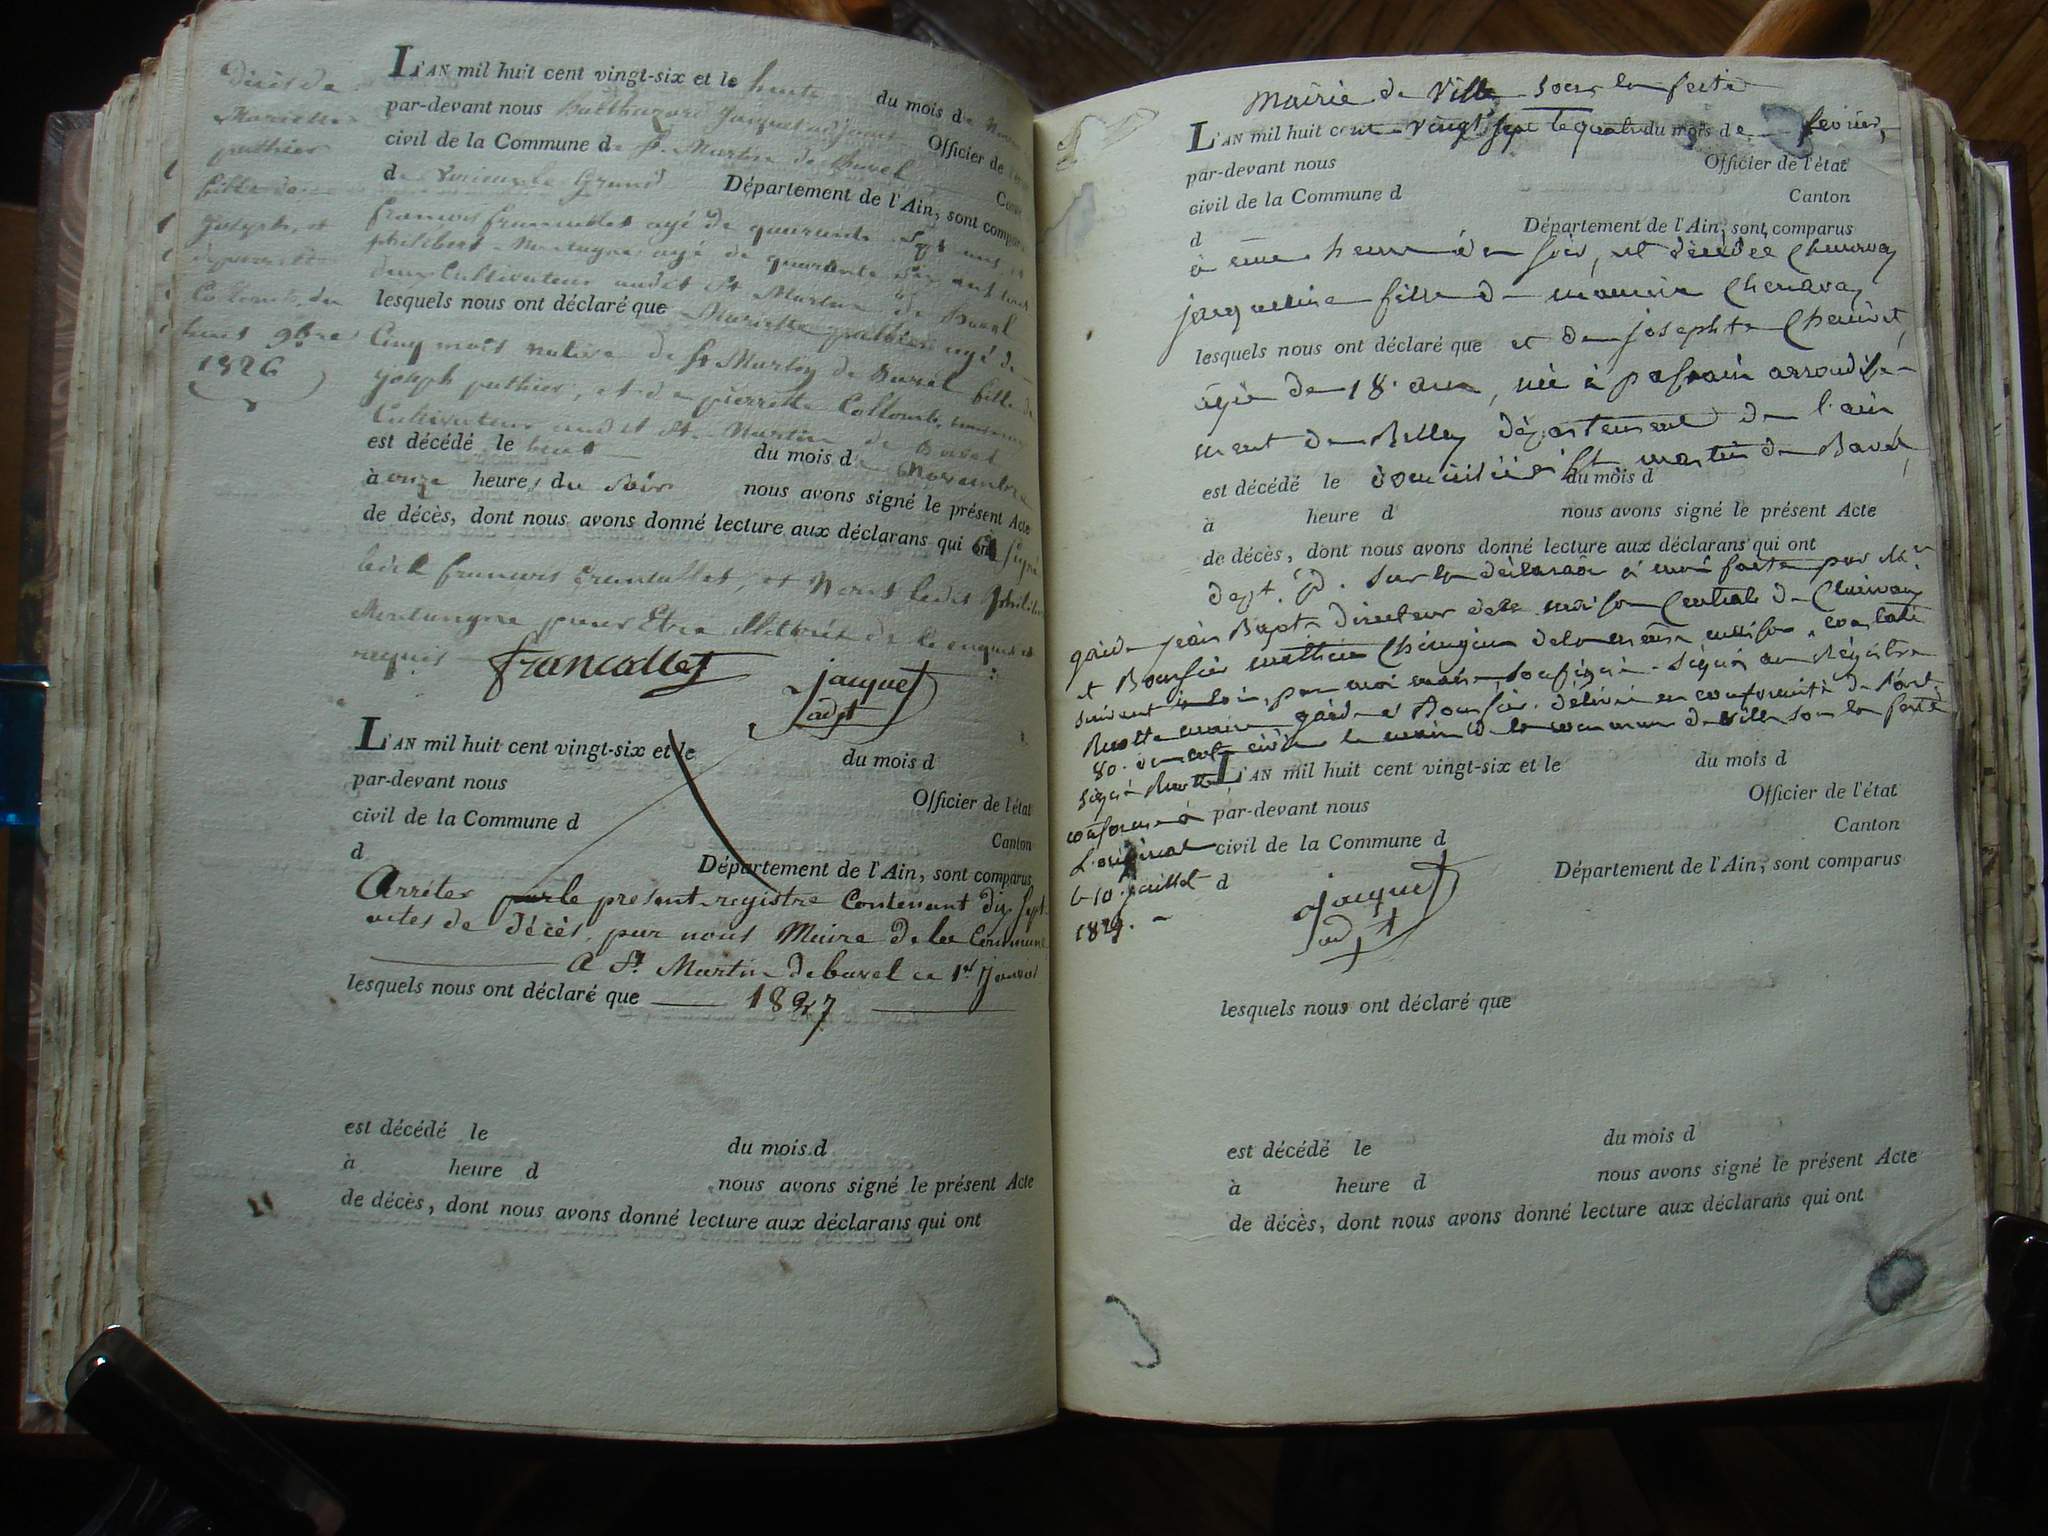 Décès de
Mariette
puthier
fille de
Joseph, et
de pierrette
Collomb, du
huit 9bre
1826
L'AN mil huit cent vingt-six et le du mois de
par-devant nous Balthazard Jacquet adjoint Officier de
civil de la Commune de St. Martin de Bavel
de Département de l'Ain, sont comparus
françois francallet agé de quarante sept ans, et
philibert Montagne agé de quarante six ans tous
deux Cultivateurs audit St Martin de Bavel
lesquels nous ont déclaré que Mariette puthier agé de
Cinq mois native de St Martin de Bavel fille de
joseph puthier, et de pierrette Collomb,
Cultivateur audit St. Martin de Bavel
est décédé le huit du mois de Novembre
à onze heures du Soir nous avons signé le présent Acte
de décès, dont nous avons donné lecture aux déclarans qui ont signé
ledit francois francallet, et Non ledit philibert
Montagne pour Etre illettré de ce enquis et
requis
francallet
Jacquet
adjt
L'AN mil huit cent vingt-six et le du mois d
par-devant nous Officier de l'état
civil de la Commune d Canton
d Département de l'Ain, sont comparus
Arrêter le present registre Contenant dix sept
actes de décès, par nous Maire de la Commune
A St Martin de bavel ce 1er Janvier
lesquels nous ont déclaré que 1827
est décédé le du mois d
à heure d nous avons signé le présent Acte
de décès, dont nous avons donné lecture aux déclarans qui ont
Mairie de Ville sous la ferté
L'AN mil huit cent vingt sept le quatre du mois de février,
par-devant nous Officier de l'état
civil de la Commune d Canton
d Département de l'Ain, sont comparus
à une heure du soir, est décédée Chenavay
jacqueline fille de Chenavay
lesquels nous ont déclaré que et de josephte
âgée de 18 ans, née à arrondisse-
ment de Belley département de l'ain
est décédé le domiciliée à St martin de Bavel, du mois d
à heure d nous avons signé le présent Acte
de décès, dont nous avons donné lecture aux déclarans qui ont
dept. id. Sur la déclaration à moi faite par Mr.
jean Bapte directeur de la maison Centrale de Clairvaux
et Boursier mathieu Chirurgien de la même maison, constaté
suivant la loi, par moi maire soussigné. Signé au Régistre
maire délivré en conformité de l'art.
80. du code civil le maire de la commune de ville sous la ferté
Signé
L'AN mil huit cent vingt-six et le du mois d
conforme à par-devant nous Officier de l'état
L'original civil de la Commune d Canton
le 10 juillet d Département de l'Ain, sont comparus
Jacquet
adjt
lesquels nous ont déclaré que
est décédé le du mois d
à heure d nous avons signé le présent Acte
de décès, dont nous avons donné lecture aux déclarans qui ont